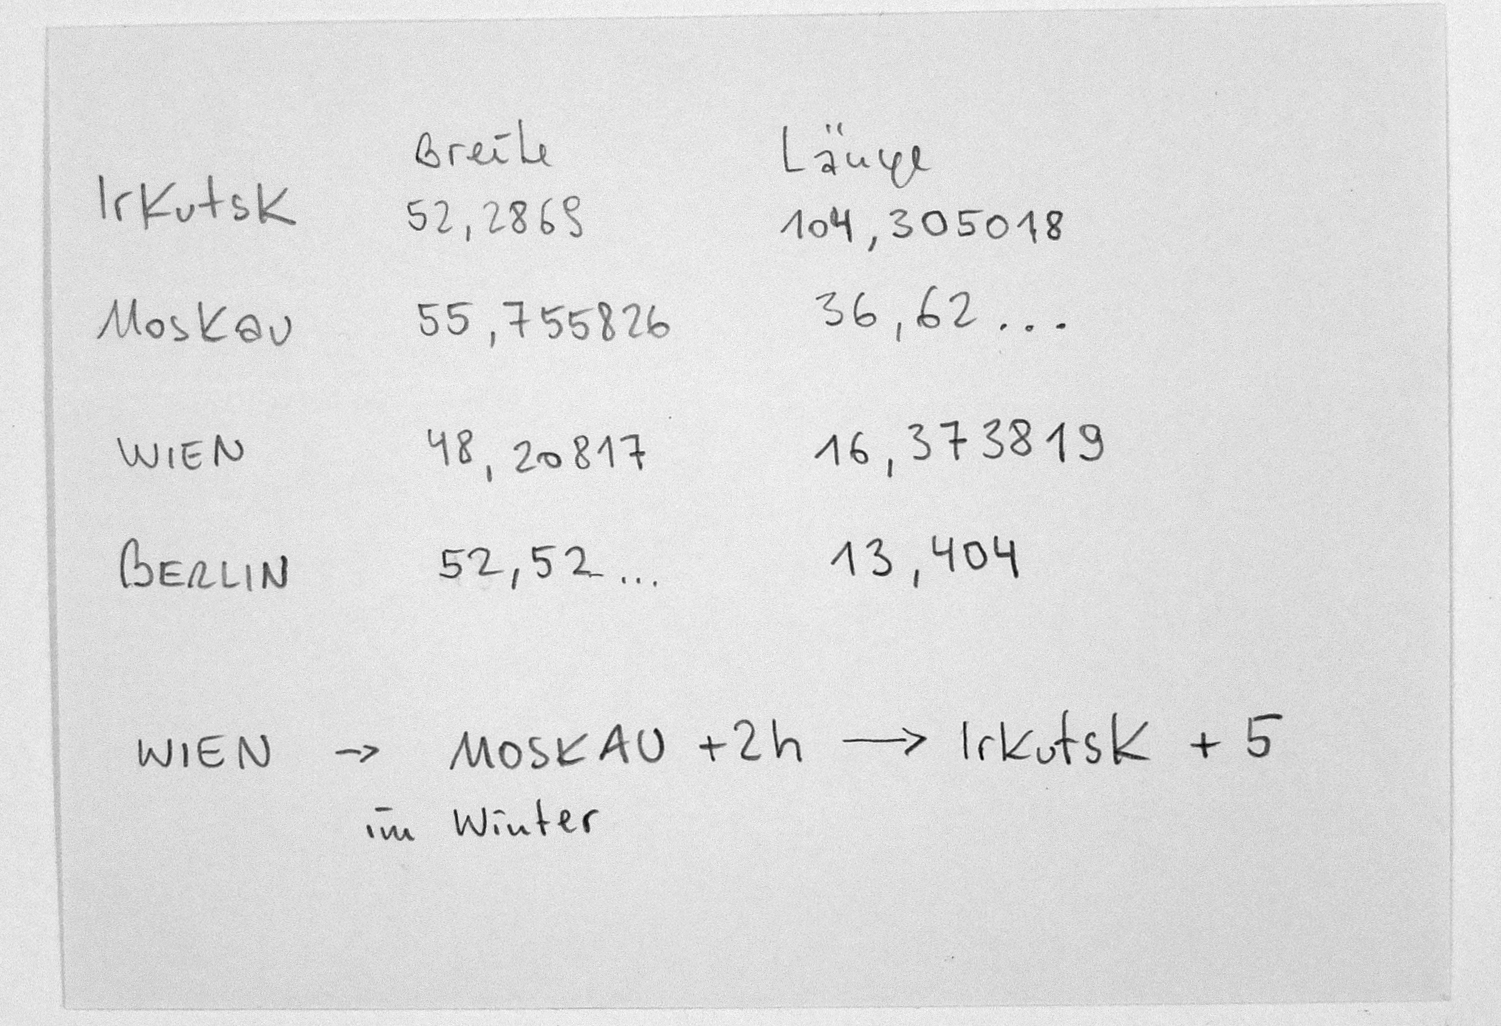 Breite Länge
Irkutsk 52,2869 104,305018
Moskau 55,755826 36,62...
WIEN 48,20817 16,373819
BERLIN 52,52... 13,404
WIEN → MOSKAU +2h → Irkutsk + 5
im Winter